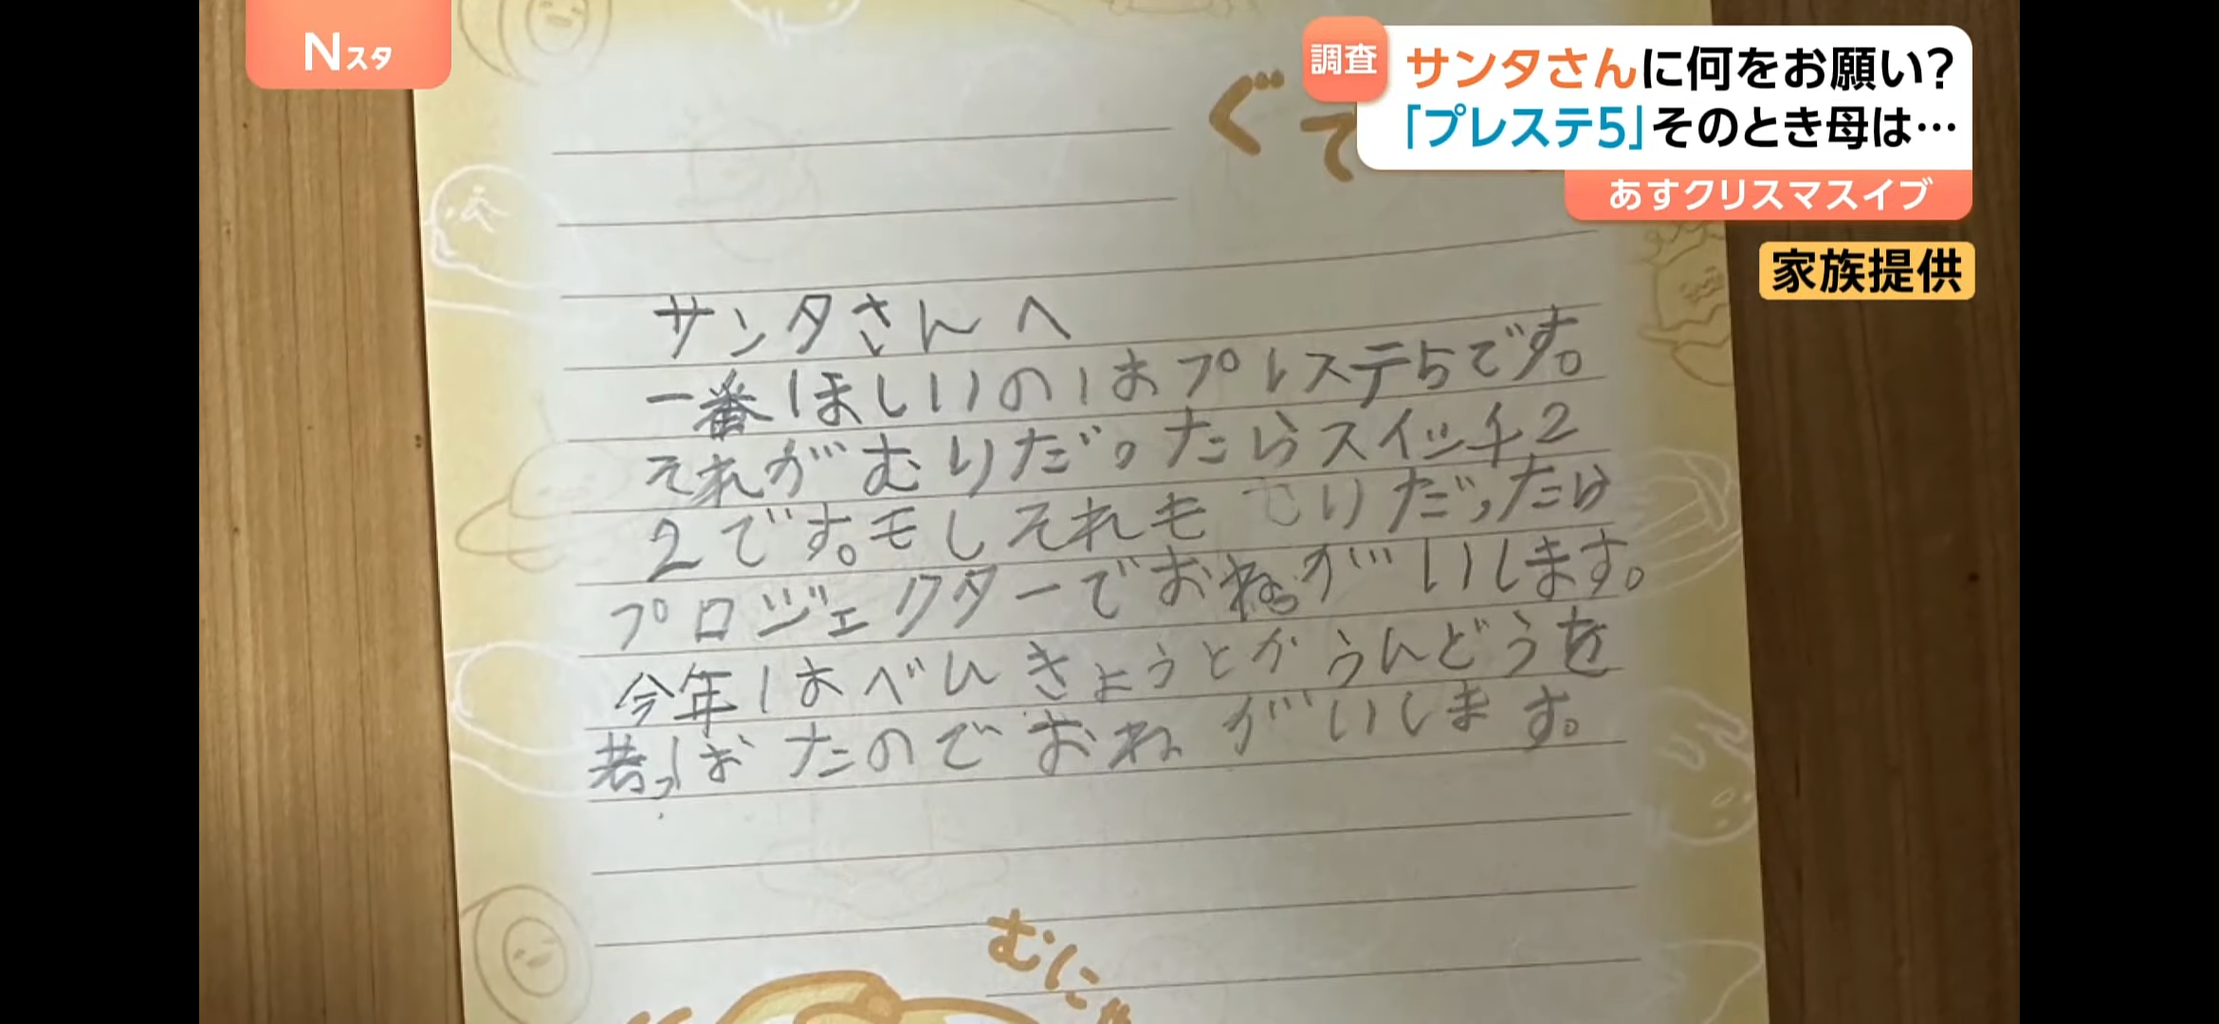 Nスタ
調査
サンタさんに何をお願い?
「プレステ5」そのとき母は…
あすクリスマスイブ
家族提供
ぐて
サンタさんへ
一番ほしいのはプレステ5です。
それがむりだったらスイッチ2
2です。もしそれもむりだったら
プロジェクターでおねがいします。
今年はべんきょうとかうんどうを
がんばったのでおねがいします。
むにゃ